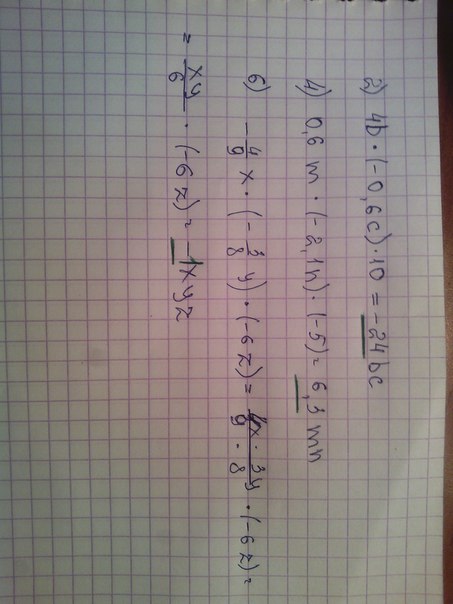 2) 4b · (-0,6c) · 10 = -24bc
4) 0,6 m · (-2,1n) · (-5) = 6,3 mn
6) -4/9 x · (-3/8 y) · (-6z) = 4x · 3y / 9 · 8 · (-6z) =
= xy/6 · (-6z) = -1xyz